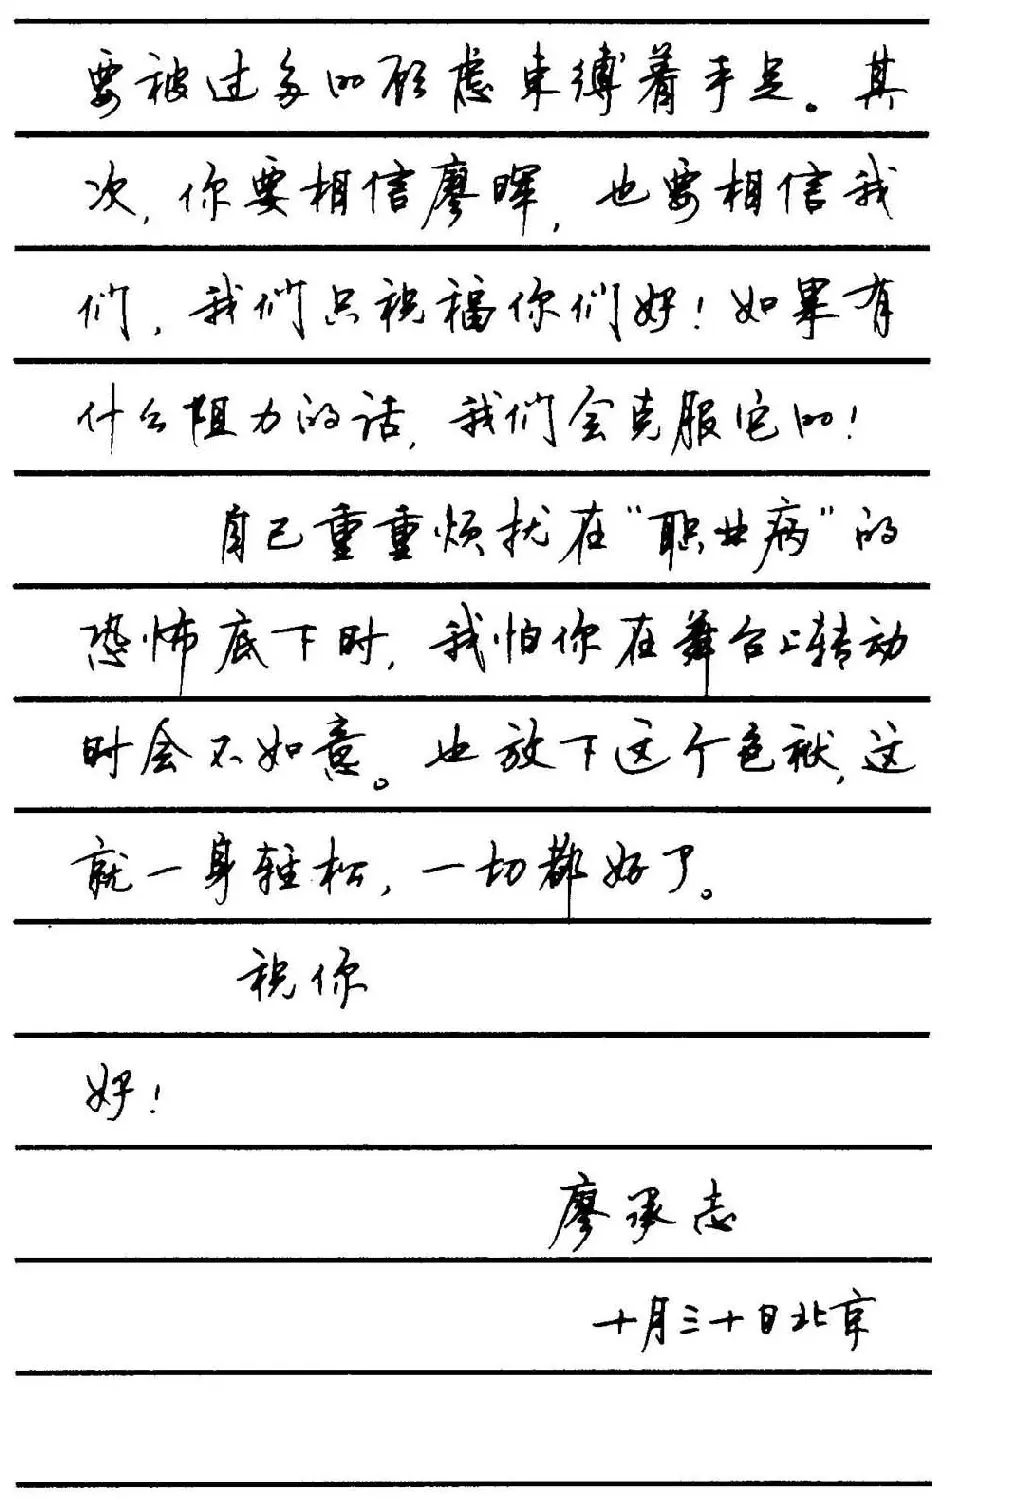 要被过多的顾虑束缚着手足。其
次,你要相信廖晖,也要相信我
们,我们只祝福你们好!如果有
什么阻力的话,我们会克服它的!
自己重重烦扰在“职业病”的
恐怖底下时,我怕你在舞台上转动
时会不如意。也放下这个包袱,这
就一身轻松,一切都好了。
祝你
好!
廖承志
十月三十日北京